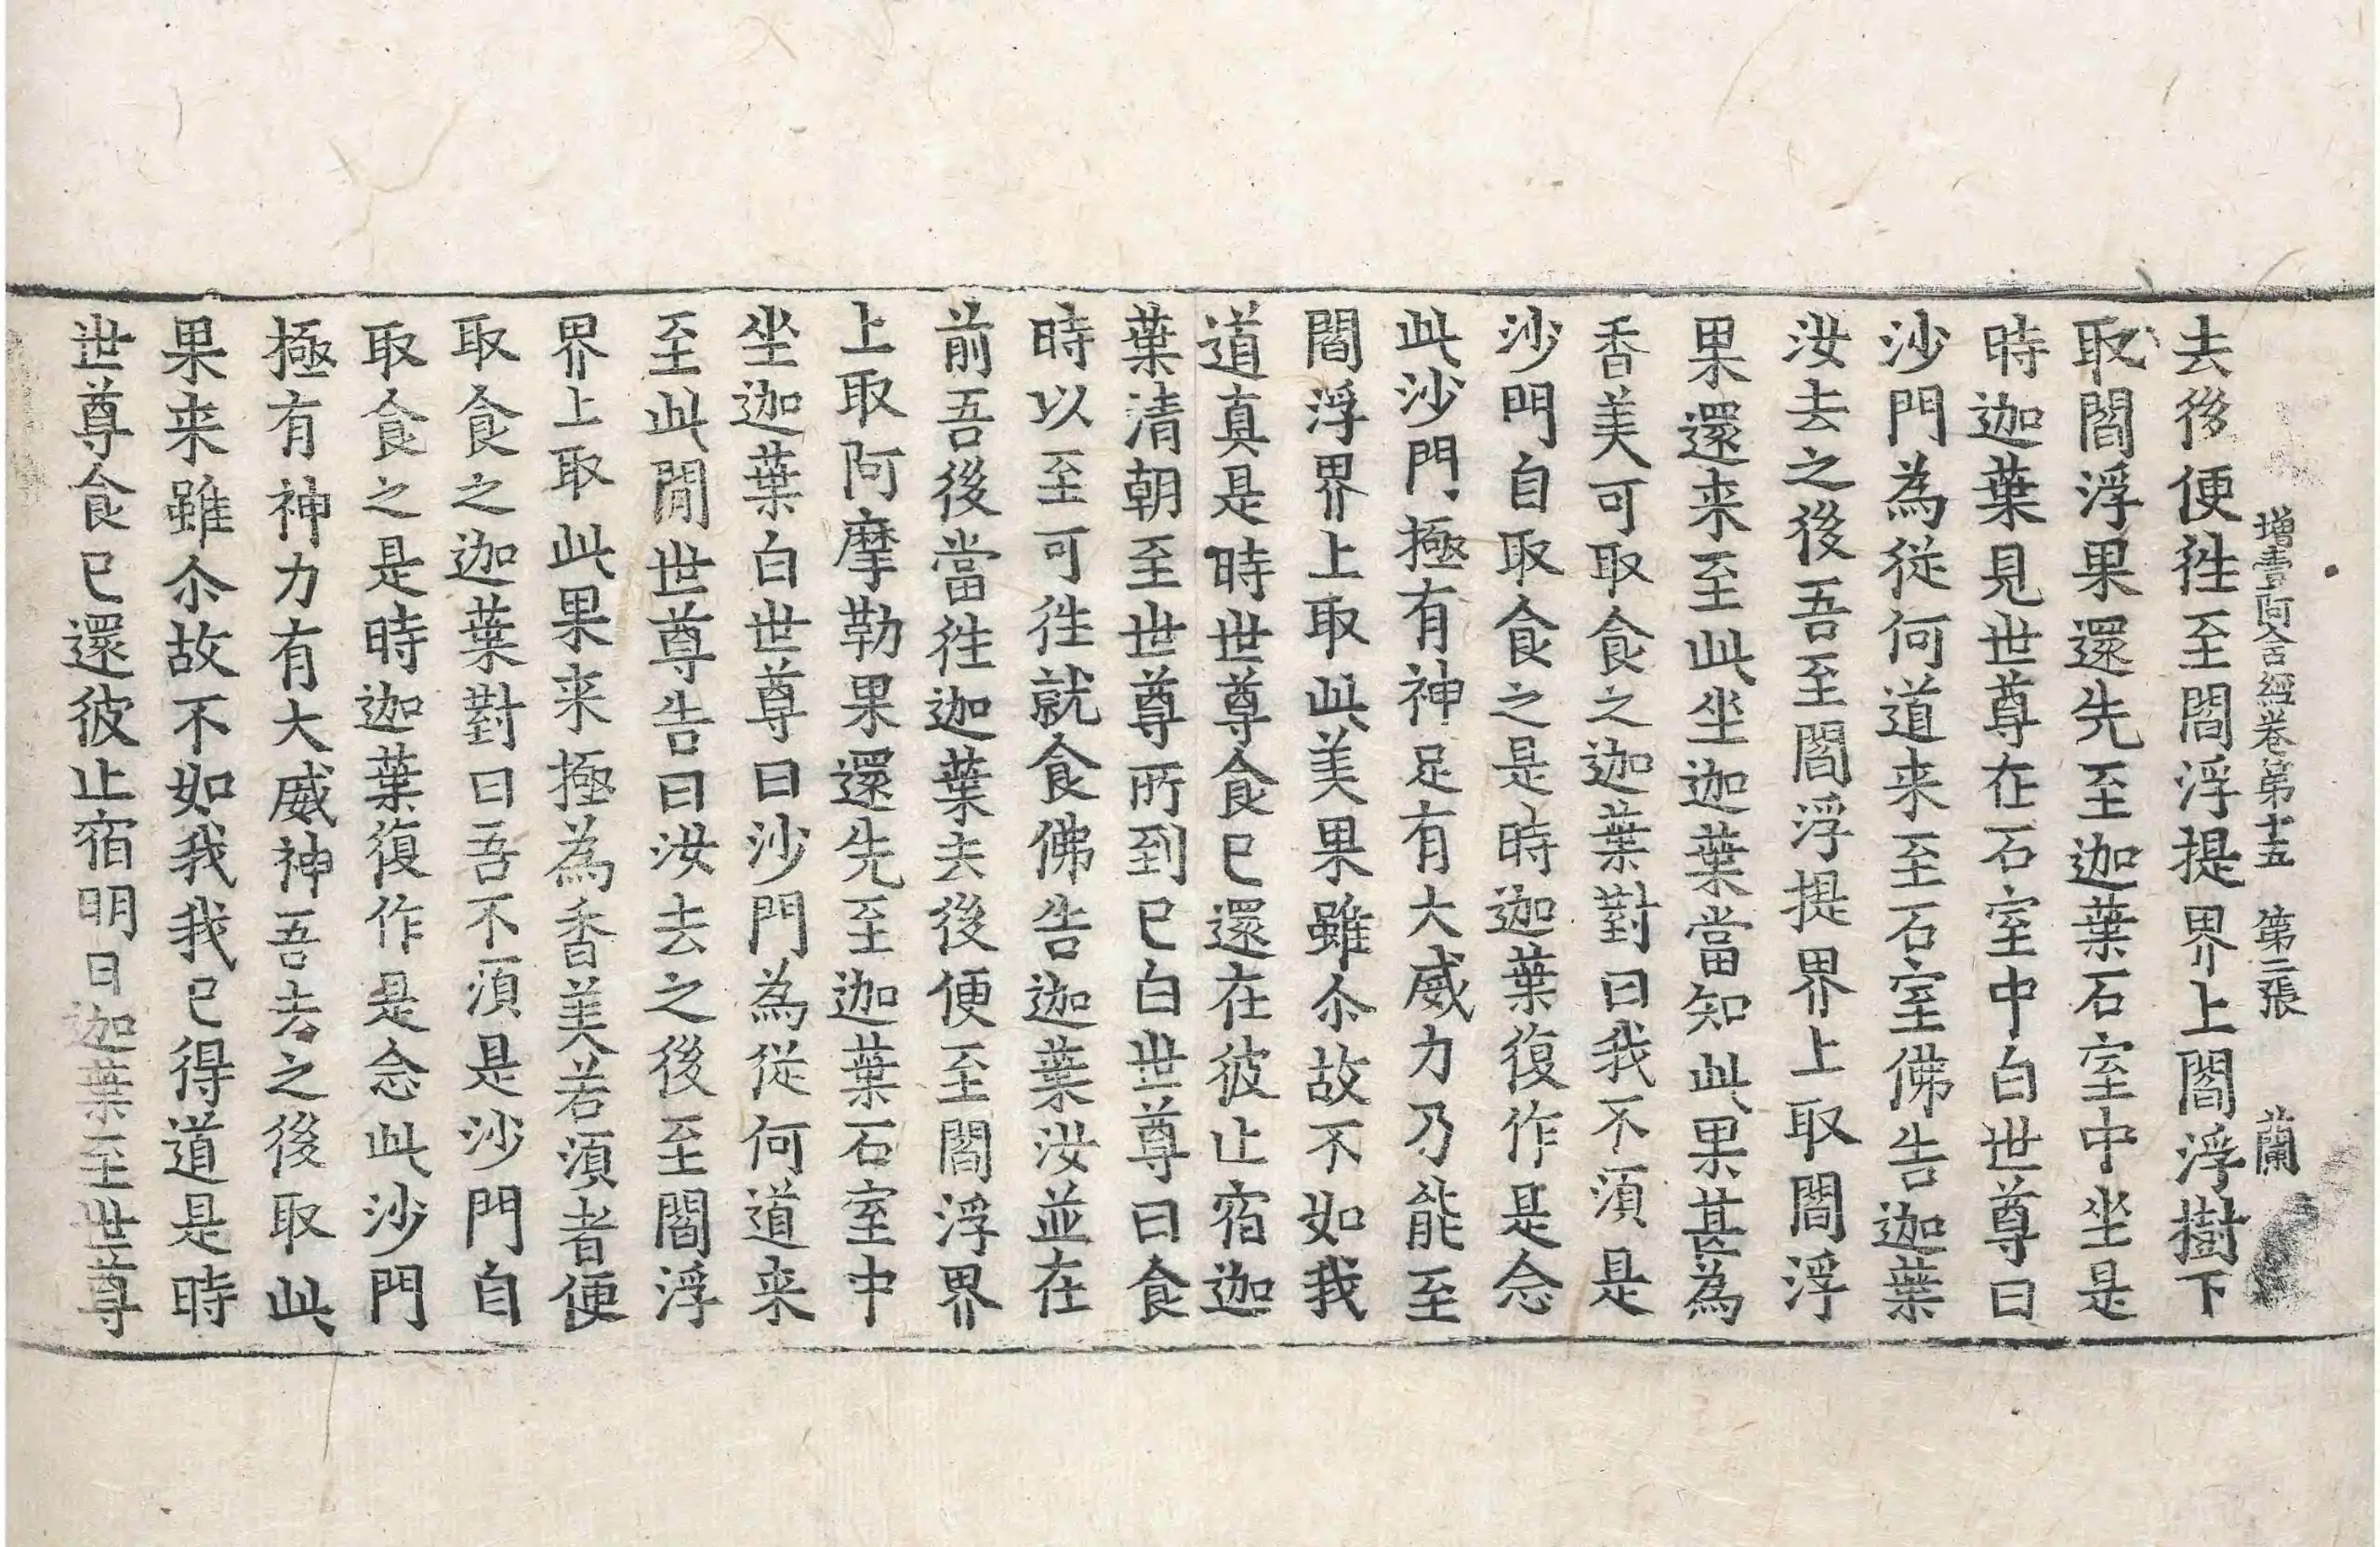 增壹阿含經卷第十五 第二張 蘭
去後便徃至閻浮提界上閻浮樹下
取閻浮果還先至迦葉石室中坐是
時迦葉見世尊在石室中白世尊曰
沙門為從何道来至石室佛告迦葉
汝去之後吾至閻浮提界上取閻浮
果還来至此坐迦葉當知此果甚為
香美可取食之迦葉對曰我不須是
沙門自取食之是時迦葉復作是念
此沙門極有神足有大威力乃能至
閻浮界上取此美果雖尒故不如我
道真是時世尊食已還在彼止宿迦
葉清朝至世尊所到已白世尊曰食
時以至可徃就食佛告迦葉汝並在
前吾後當徃迦葉去後便至閻浮界
上取阿摩勒果還先至迦葉石室中
坐迦葉白世尊曰沙門為從何道来
至此閒世尊告曰汝去之後至閻浮
界上取此果来極為香美若須者便
取食之迦葉對曰吾不須是沙門自
取食之是時迦葉復作是念此沙門
極有神力有大威神吾去之後取此
果来雖尒故不如我我已得道是時
世尊食已還彼止宿明日迦葉至世尊